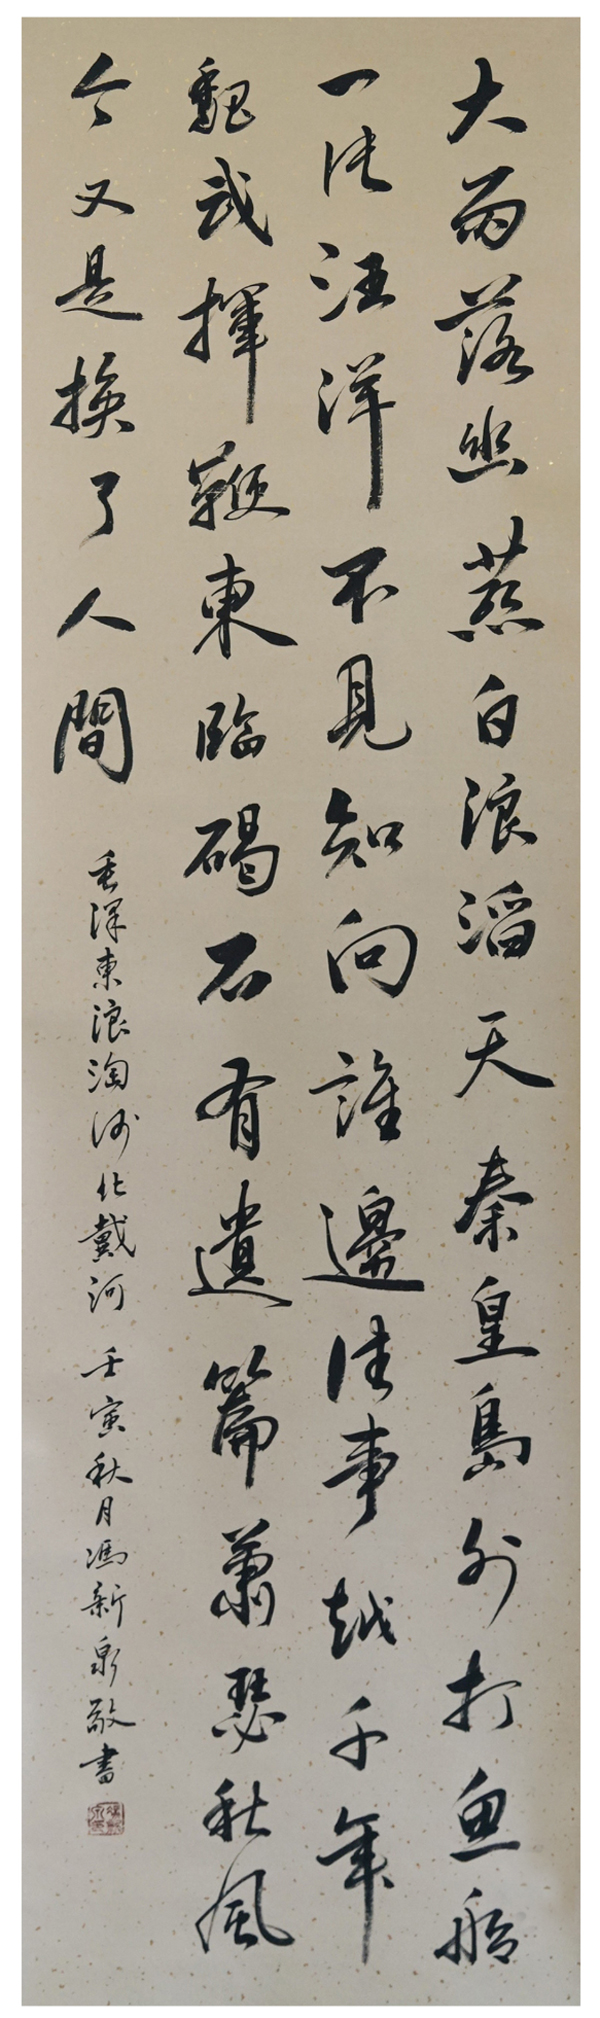 大雨落幽燕白浪滔天秦皇島外打魚船
一片汪洋不見知向誰邊往事越千年
魏武揮鞭東臨碣石有遺篇蕭瑟秋風
今又是換了人間
毛澤東浪淘沙北戴河 壬寅秋月馮新泉敬書